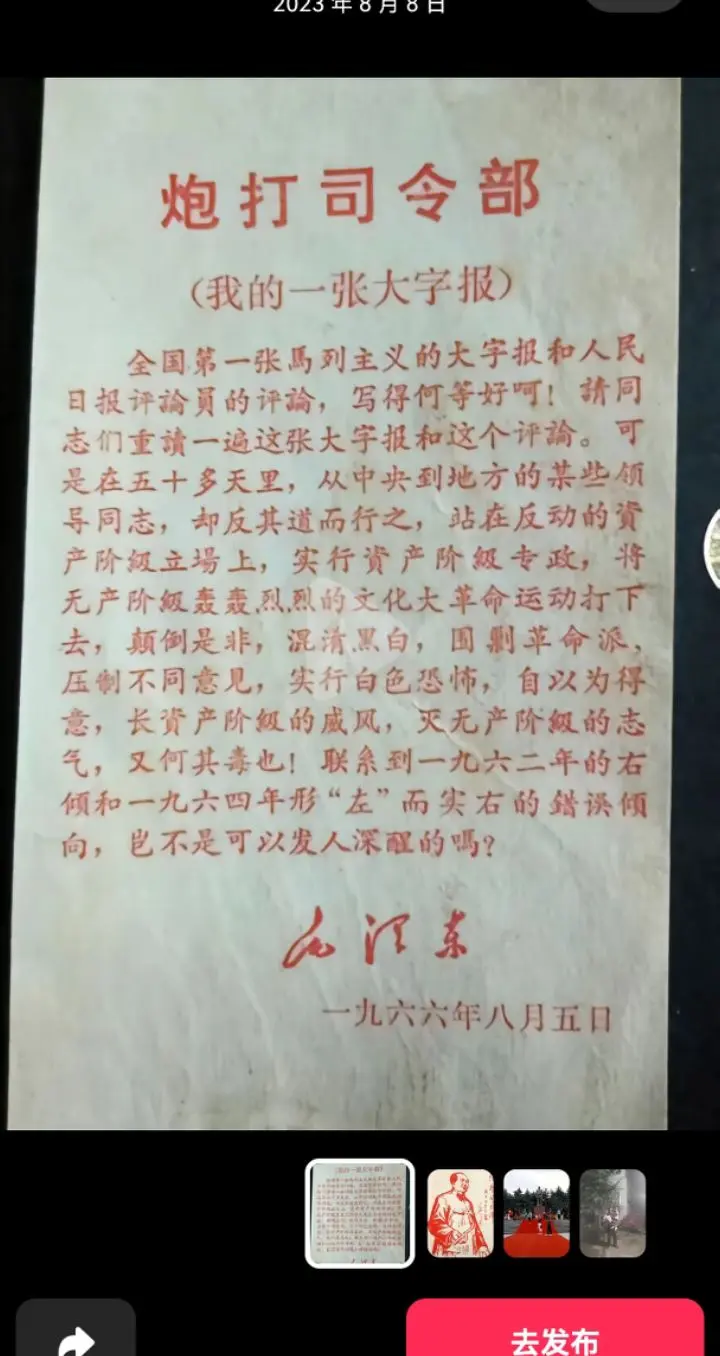 2023 年 8 月 8 日
炮打司令部
（我的一张大字报）
全国第一张馬列主义的大字报和人民
日报评論員的评論，写得何等好呵！請同
志们重讀一遍这张大字报和这个评論。可
是在五十多天里，从中央到地方的某些领
导同志，却反其道而行之，站在反动的資
产阶級立場上，实行資产阶級专政，将
无产阶級轰轰烈烈的文化大革命运动打下
去，颠倒是非，混淆黑白，围剿革命派，
压制不同意见，实行白色恐怖，自以为得
意，长資产阶級的威风，灭无产阶級的志
气，又何其毒也！联系到一九六二年的右
傾和一九六四年形“左”而实右的錯误傾
向，岂不是可以发人深醒的嗎？
毛泽东
一九六六年八月五日
去发布